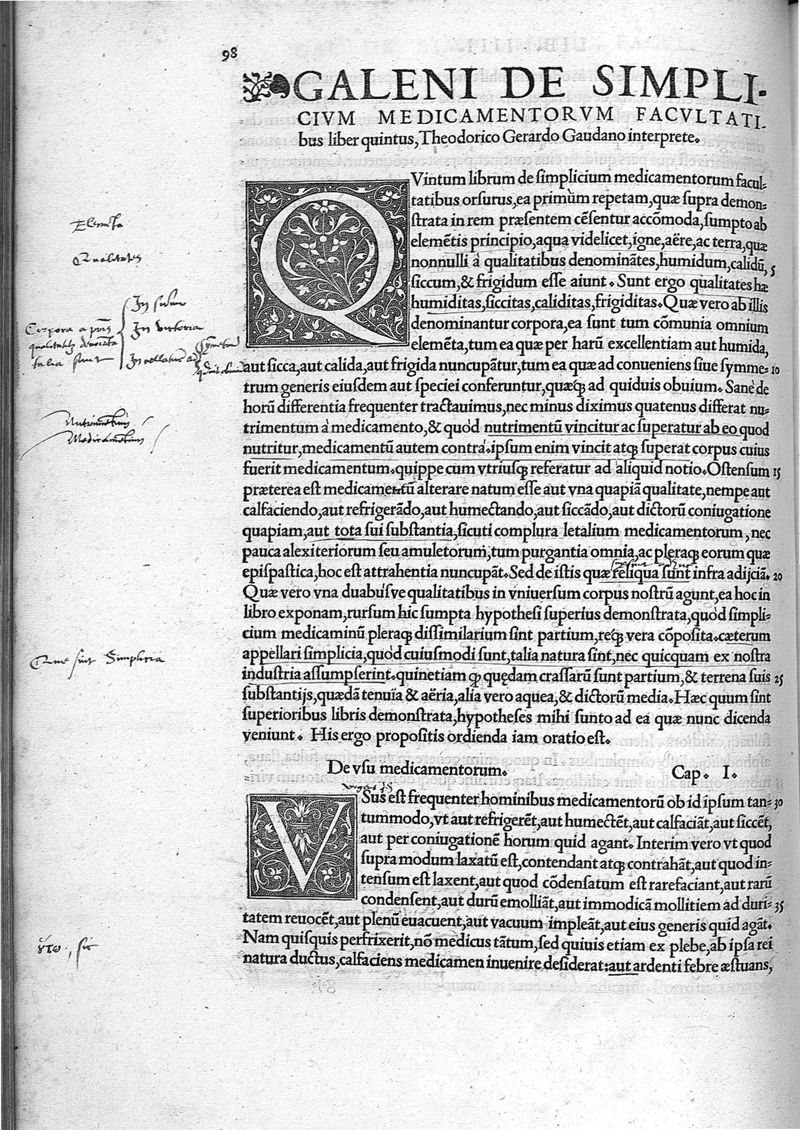 98
GALENI DE SIMPLI-
CIVM MEDICAMENTORVM FACVLTATI-
bus liber quintus, Theodorico Gerardo Gaudano interprete.
QVintum librum de simplicium medicamentorum facul-
tatibus orsurus, ea primùm repetam, quæ supra demon-
strata in rem præsentem cẽsentur accõmoda, sumpto ab
elemẽtis principio, aqua videlicet, igne, aëre, ac terra, quæ
nonnulli à qualitatibus denominãtes, humidum, calidũ, 5
siccum, & frigidum esse aiunt. Sunt ergo qualitates hæ
humiditas, siccitas, caliditas, frigiditas. Quæ vero ab illis
denominantur corpora, ea sunt tum cõmunia omnium
elemẽta, tum ea quæ per harũ excellentiam aut humida,
aut sicca, aut calida, aut frigida nuncupãtur, tum ea quæ ad conueniens siue symme- 10
trum generis eiusdem aut speciei conferuntur, quæq; ad quiduis obuium. Sane de
horũ differentia frequenter tractauimus, nec minus diximus quatenus differat nu-
trimentum à medicamento, & quòd nutrimentũ vincitur ac superatur ab eo quod
nutritur, medicamentũ autem contrà. ipsum enim vincit atq; superat corpus cuius
fuerit medicamentum. quippe cum vtriusq; referatur ad aliquid notio. Ostensum 15
præterea est medicamentũ alterare natum esse aut vna quapiã qualitate, nempe aut
calfaciendo, aut refrigerãdo, aut humectando, aut siccãdo, aut dictorũ coniugatione
quapiam, aut tota sui substantia, sicuti complura letalium medicamentorum, nec
pauca alexiteriorum seu amuletorum, tum purgantia omnia, ac pleraq; eorum quæ
epispastica, hoc est attrahentia nuncupãt. Sed de istis quæ reliqua sunt infra adijciã. 20
Quæ vero vna duabúsve qualitatibus in vniuersum corpus nostrũ agunt, ea hoc in
libro exponam, rursum hic sumpta hypothesi superius demonstrata, quòd simpli-
cium medicaminũ pleraq; dissimilarium sint partium, req; vera cõposita. cæterum
appellari simplicia, quòd cuiusmodi sunt, talia natura sint, nec quicquam ex nostra
industria assumpserint. quinetiam quędam crassarũ sunt partium, & terrena suis 25
substantijs, quædã tenuia & aëria, alia vero aquea, & dictorũ media. Hæc quum sint
superioribus libris demonstrata, hypotheses mihi sunto ad ea quæ nunc dicenda
veniunt. His ergo propositis ordienda iam oratio est.
De vsu medicamentorum. Cap. I.
VSus est frequenter hominibus medicamentorũ ob id ipsum tan- 30
tummodo, vt aut refrigerẽt, aut humectẽt, aut calfaciãt, aut siccẽt,
aut per coniugationẽ horum quid agant. Interim vero vt quod
supra modum laxatũ est, contendant atq; contrahãt, aut quod in-
tensum est laxent, aut quod cõdensatum est rarefaciant, aut rarũ
condensent, aut durũ emolliãt, aut immodicã mollitiem ad duri- 35
tatem reuocẽt, aut plenũ euacuent, aut vacuum impleãt, aut eius generis quid agãt.
Nam quisquis perfrixerit, nõ medicus tãtum, sed quiuis etiam ex plebe, ab ipsa rei
natura ductus, calfaciens medicamen inuenire desiderat: aut ardenti febre æstuans,
Elementa
Qualitates
Corpora a
qualitatib
Nutrimentum
Medicamentum
Que sint Simplicia